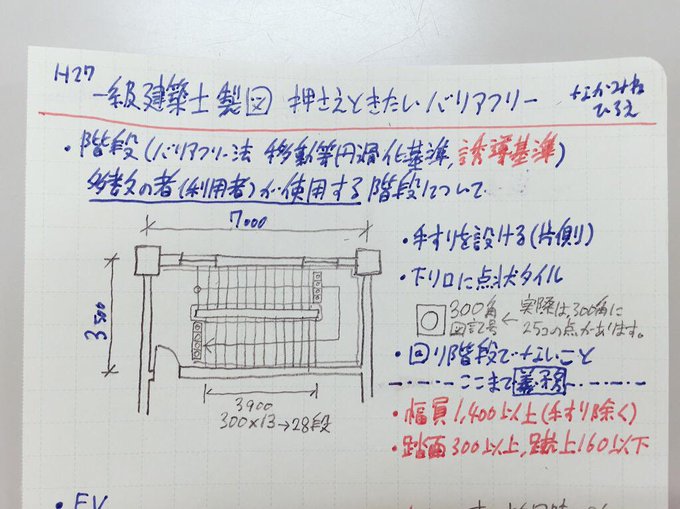 H27
一級建築士製図 押さえときたいバリアフリー
ひろえ
・階段(バリアフリー法 移動等円滑化基準,誘導基準)
多数の者(利用者)が使用する階段について
7000
3500
3900
300×13→28段
・手すりを設ける(片側)
・下り口に点状タイル
300角
図記号
← 実際は、300角に
25コの点があります。
・回り階段でないこと
ここまで義務
・幅員1,400以上(手すり除く)
・踏面300以上,蹴上160以下
・EV